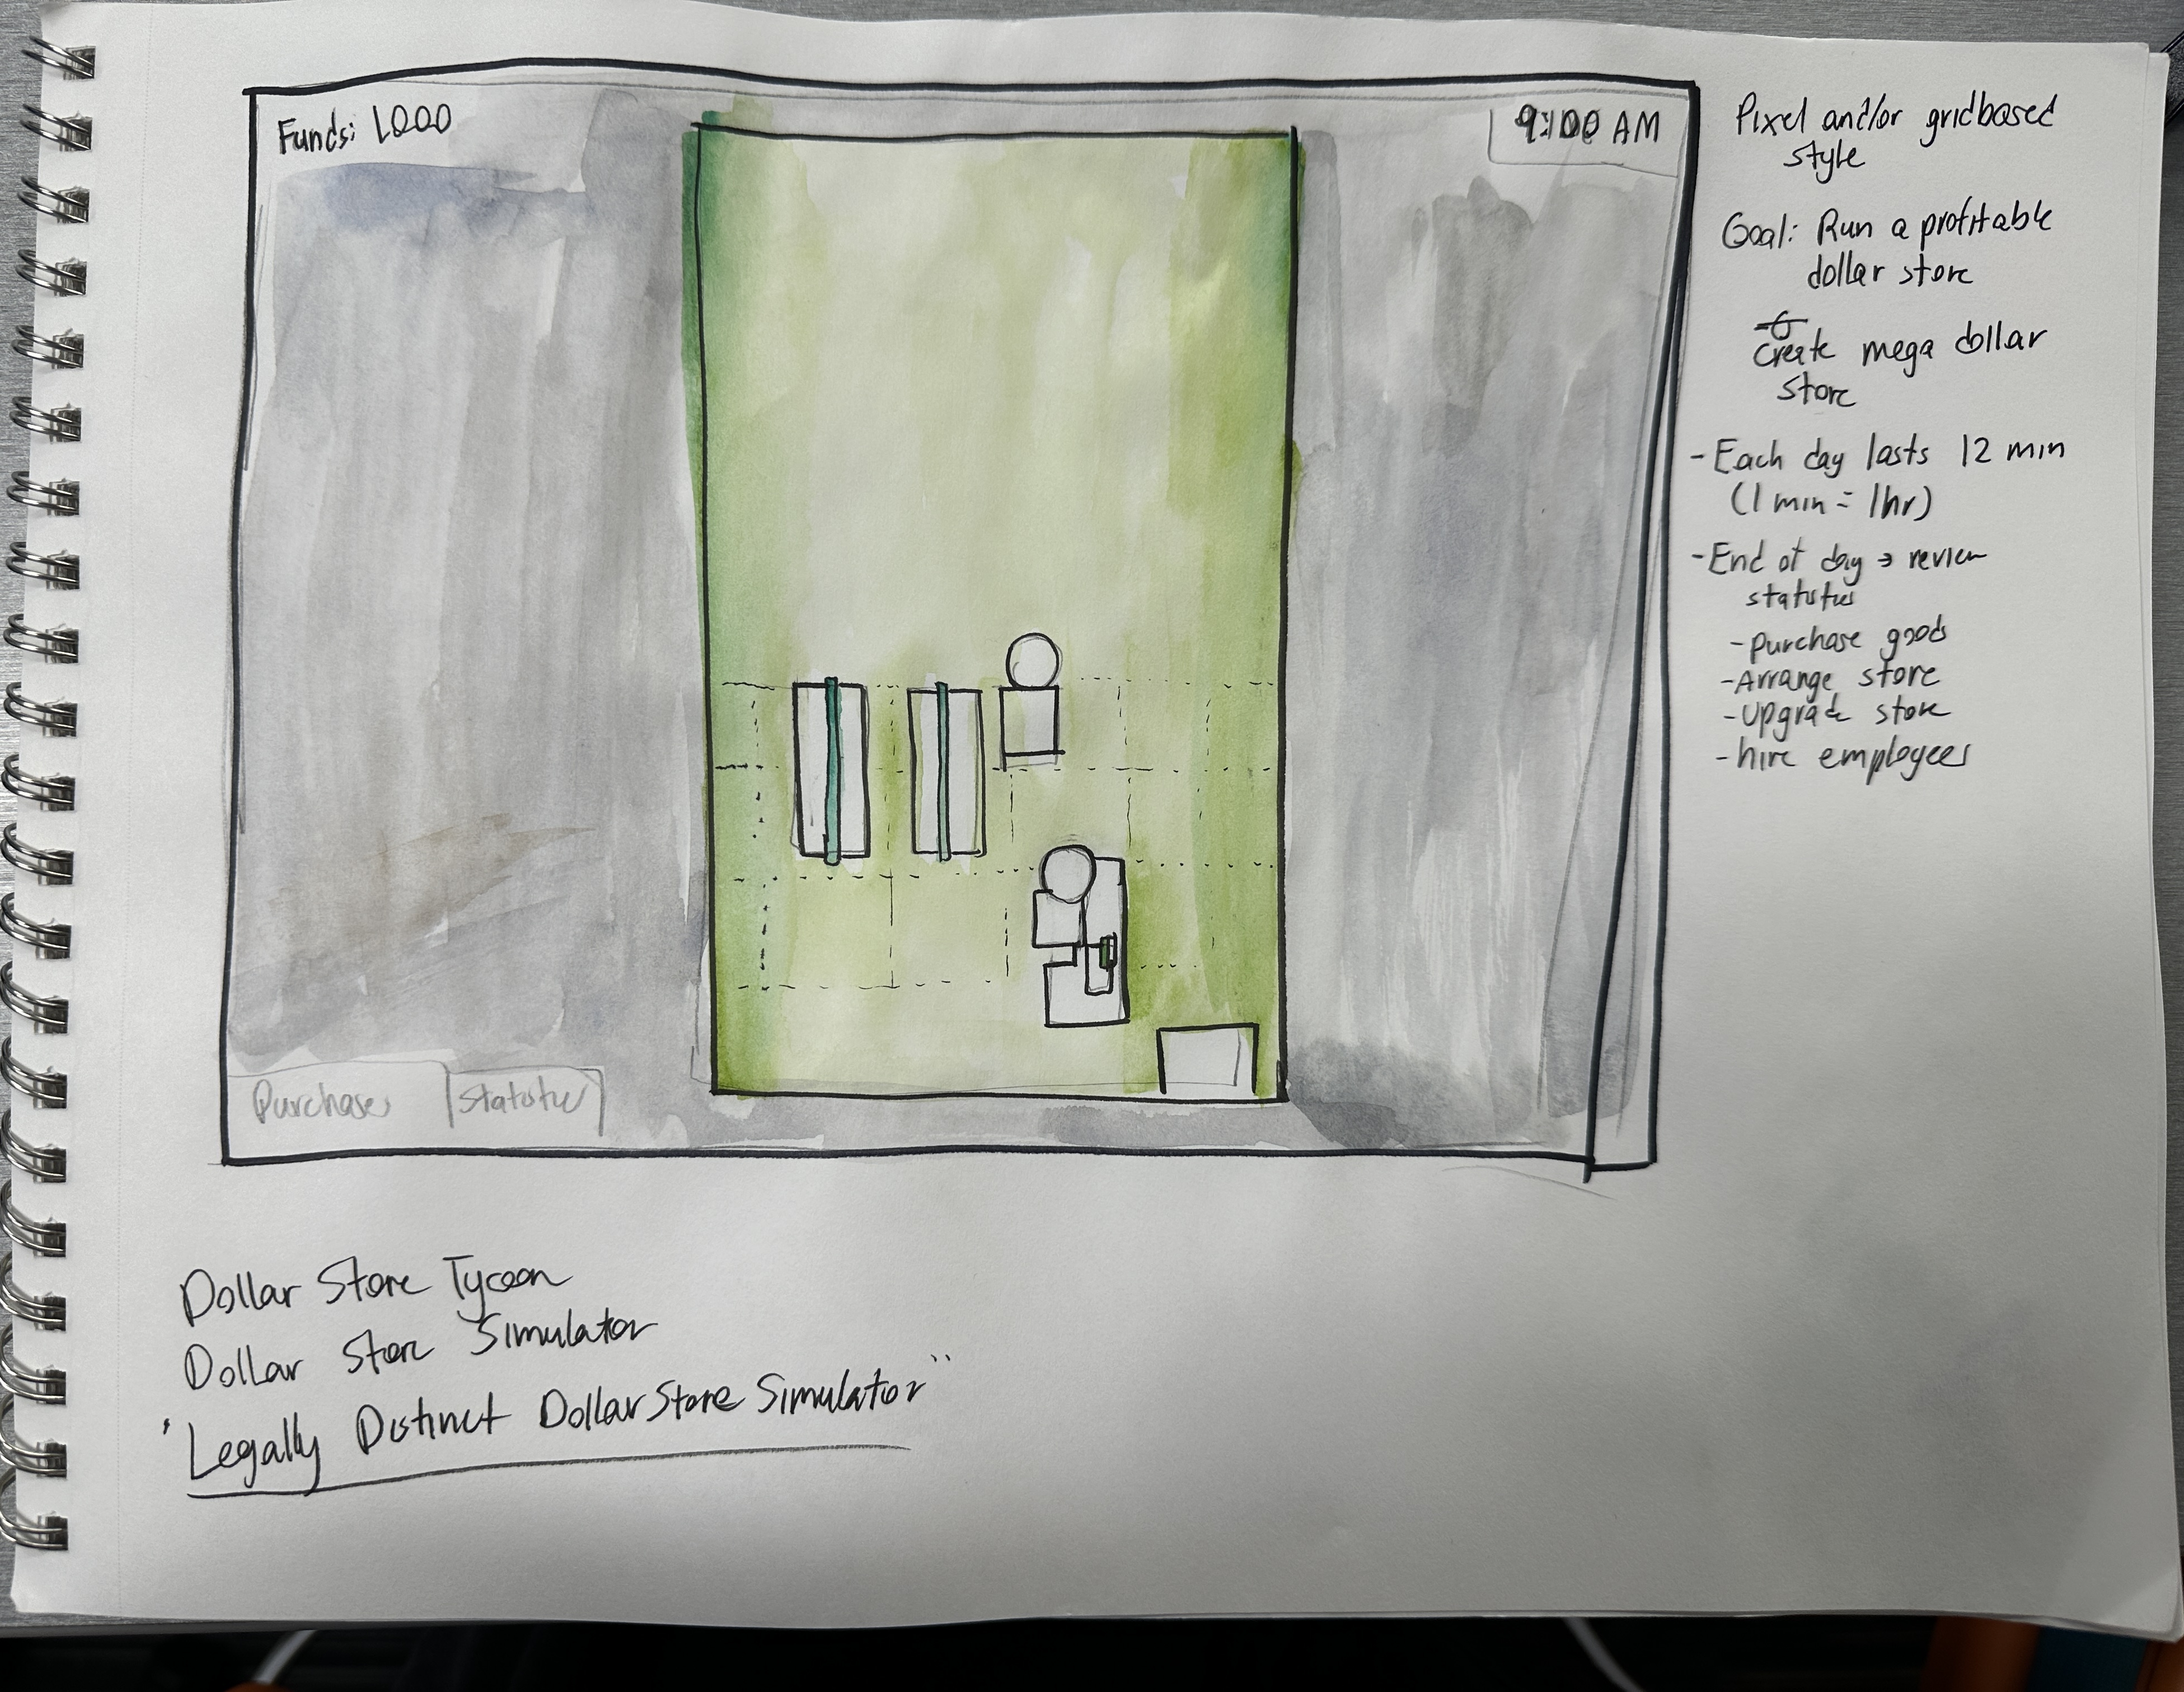 Funds: 1000
9:00 AM
Purchase
Statistics
Pixel and/or gridbased
style
Goal: Run a profitable
dollar store
Create mega dollar
store
- Each day lasts 12 min
(1 min = 1hr)
- End of day → review
statistics
- Purchase goods
- Arrange store
- Upgrade store
- hire employees
Dollar Store Tycoon
Dollar Store Simulator
"Legally Distinct Dollar Store Simulator"